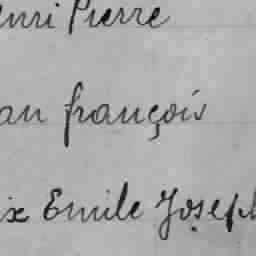 enri Pierre
an françois
ix Emile Joseph